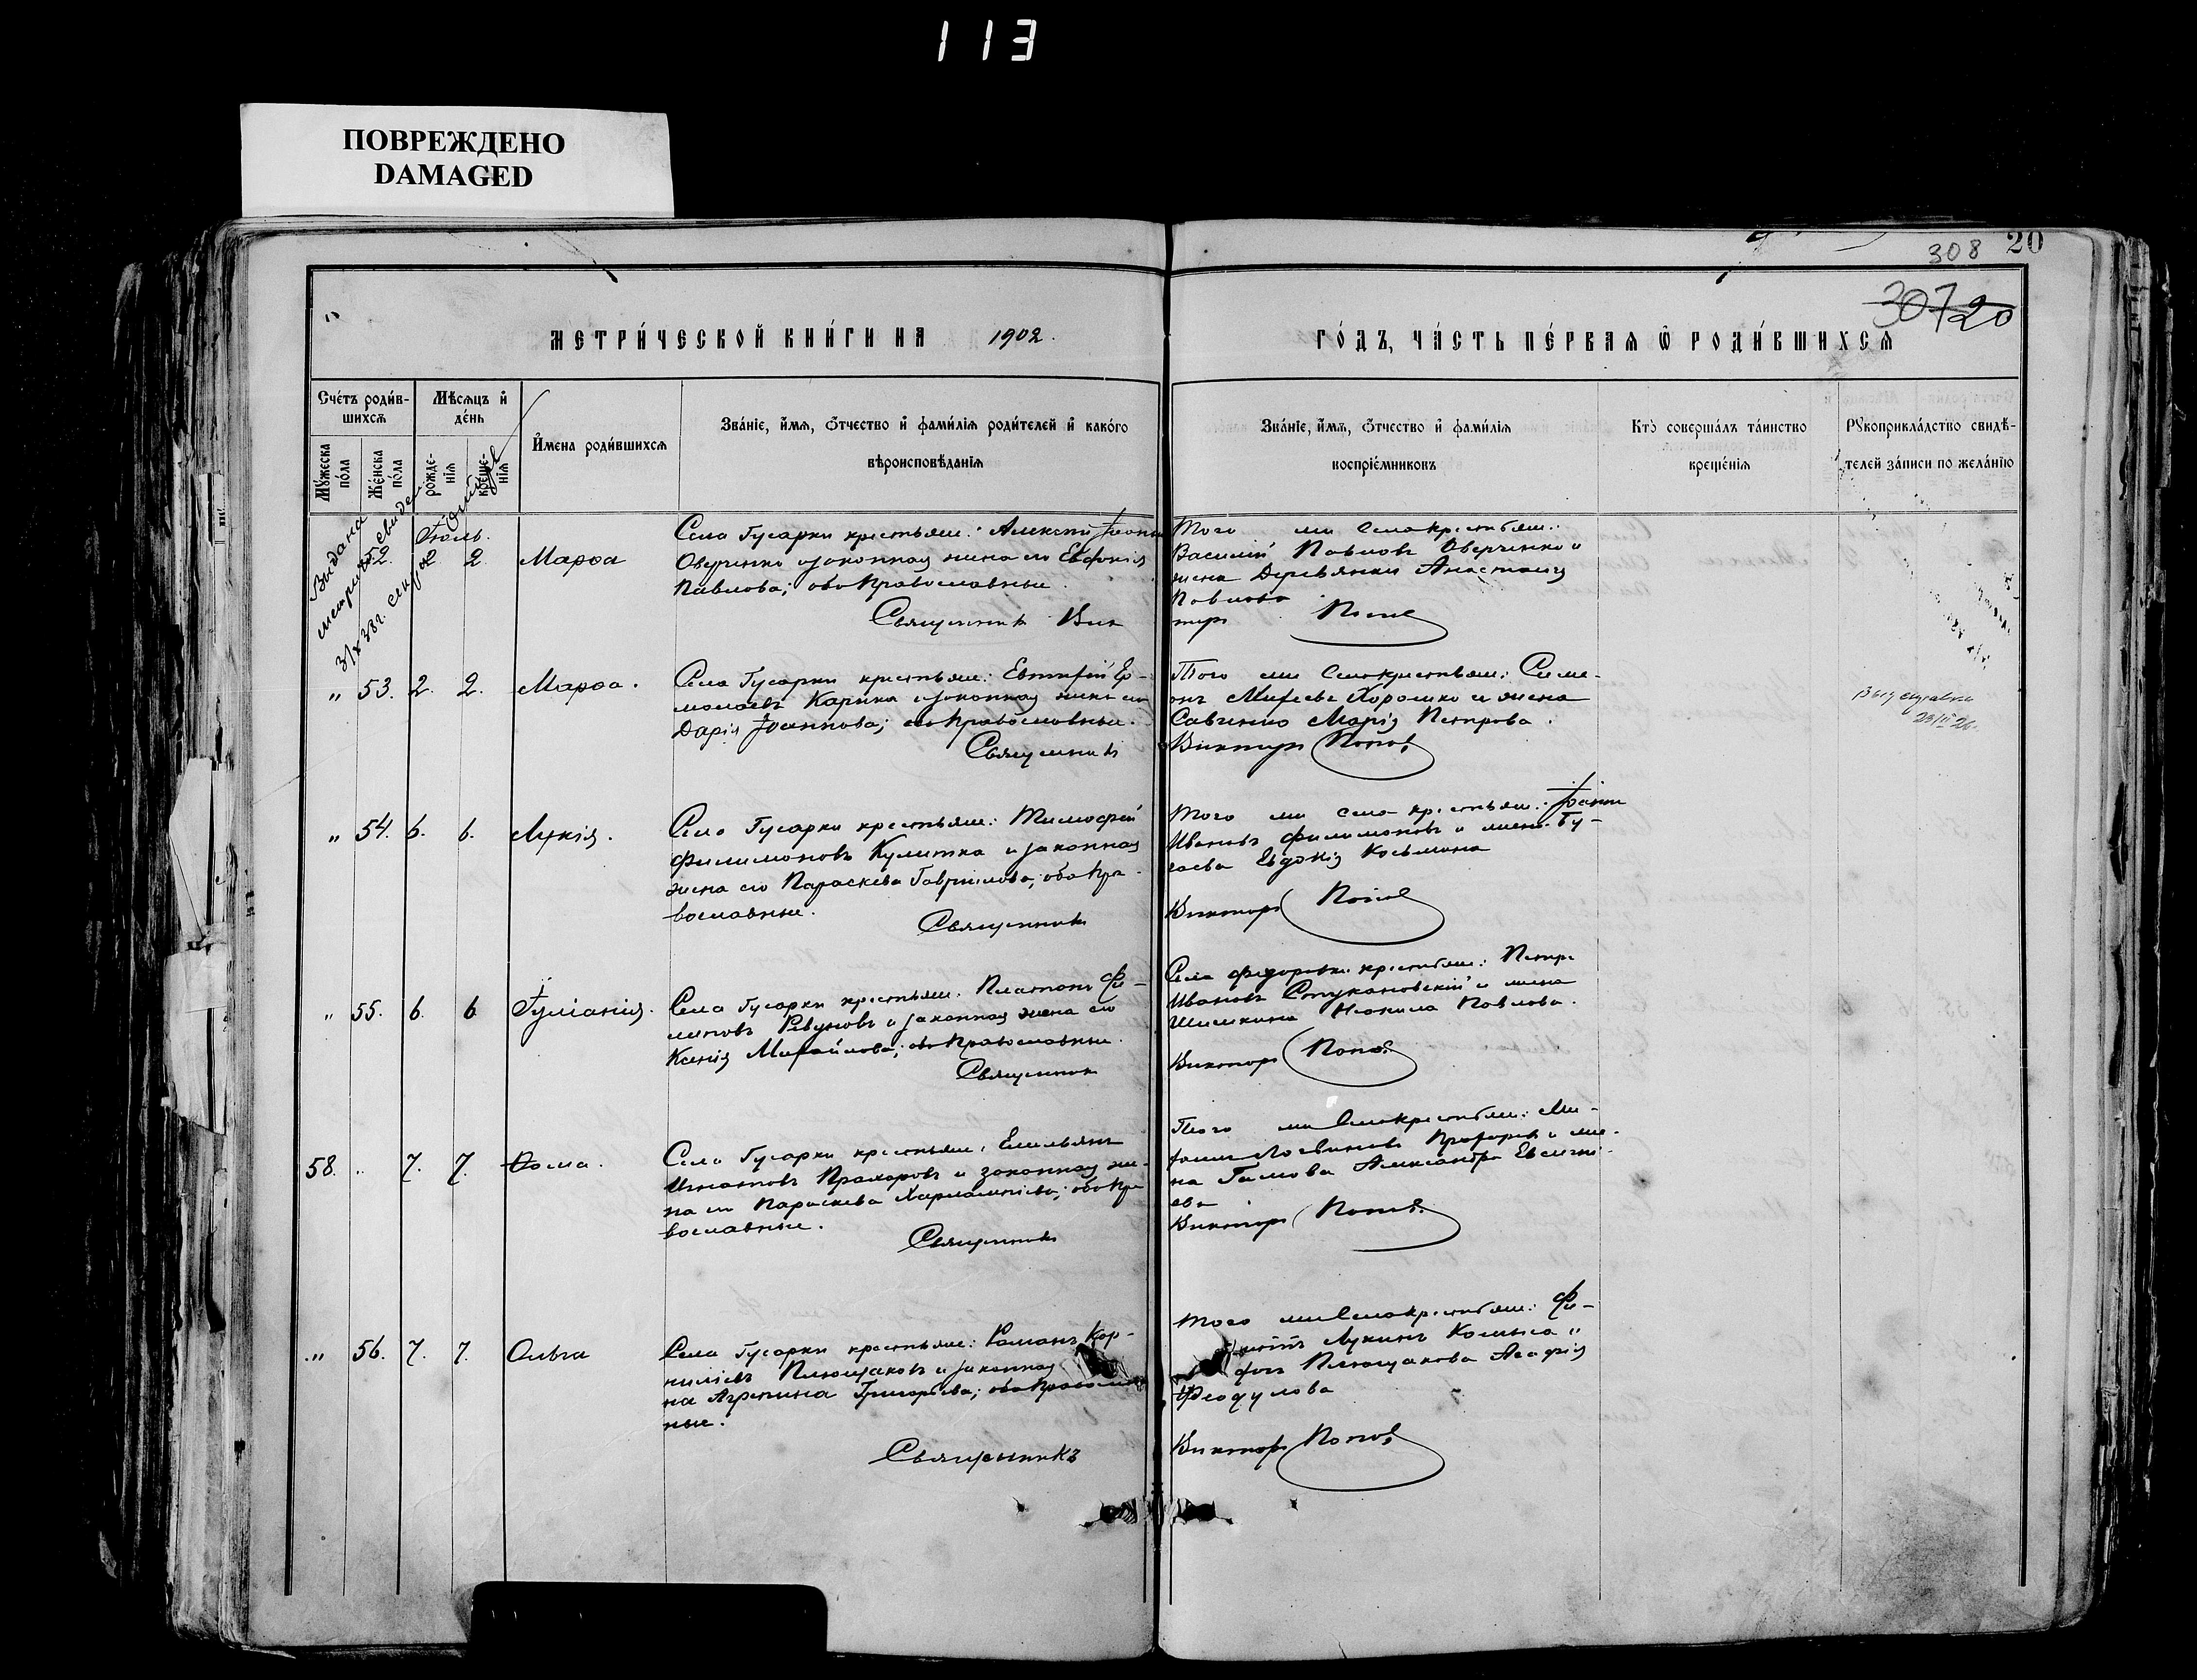 113
ПОВРЕЖДЕНО
DAMAGED
308 20
307 20
МЕТРИ́ЧЕСКОЙ КНИ́ГИ НА 1902.
ГО́ДЪ, ЧА́СТЬ ПЕ́РВАѦ Ѽ РОДИ́ВШИХСѦ
Сче́тъ роди́в-
шихсѧ
Мѣсѧцъ и҆
де́нь
Мꙋ́жеска
по́ла
Же́нска
по́ла
рожде-
нїѧ
креще-
нїѧ
И҆мена роди́вшихсѧ
Зва́нїе, и҆́мѧ, ѻ҆́тчество и҆ фами́лїѧ роди́телей и҆ како́гѡ
вѣроисповѣ́данїѧ
Зва́нїе, и҆́мѧ, ѻ҆́тчество и҆ фами́лїѧ
воспрїе́мниковъ
Кто̀ соверша́лъ та́инство
креще́нїѧ
Рꙋкоприкла́дство свидѣ́-
телей за́писи по жела́нїю
Выдана
Іюль.
52. 2 2 Марѳа
Села Гусарки крестьян: Алексій Іоаннъ
Оверченко и законная жена его Евфимія
Павлова; оба православные.
Священник Вик
Того же села крестьян:
Василій Павловъ Оверченко и
жена Деревянки Анастасія
Павлова
торъ Попов
" 53. 2. 2. Марѳа.
Села Гусарки крестьян: Евтифій Ер-
молаевъ Карпка и законная жена его
Дарія Іоаннова; оба православные.
Священникъ
Того же села крестьян: Симе-
онъ Хорошко и жена
Савченко Марія Петрова.
Викторъ Попов
23/II 26.
" 54. 6. 6. Лукія.
Села Гусарки крестьян: Тимофей
Филимоновъ Кулитка и законная
жена его Параскева Гавриилова; оба пра-
вославные.
Священникъ
Того же села крестьян: Іоаннъ
Ивановъ Филимоновъ и жена Бу-
гаева Евдокія Козьмина
Викторъ Попов
" 55. 6. 6 Іуліанія.
Села Гусарки крестьян: Платонъ Фи-
липовъ Ревуновъ и законная жена его
Ксенія Михайлова; оба православные.
Священник
Села Федоровки крестьян: Петръ
Ивановъ Стукановскій и жена
Шишкина Неонила Павлова.
Викторъ Попов
58. " 7. 7. Ѳома.
Села Гусарки крестьян: Емельянъ
Игнатовъ Прохоровъ и законная же-
на его Параскева Харлампіева; оба пра
вославные.
Священникъ
Того же села крестьян: Ми-
Логвиновъ Прохоровъ и же-
на Гамова Александра Евсигні-
ева
Викторъ Попов.
" 56. 7. 7. Ольга
Села Гусарки крестьян: Романъ Кор-
нилиевъ Плющаковъ и законная
на Агрепина Григорьева; оба православ
ные.
Священникъ
Того же села крестьян: Фи-
Лукинъ Комыса "
Плющакова Агафія
Феодулова
Викторъ Попов